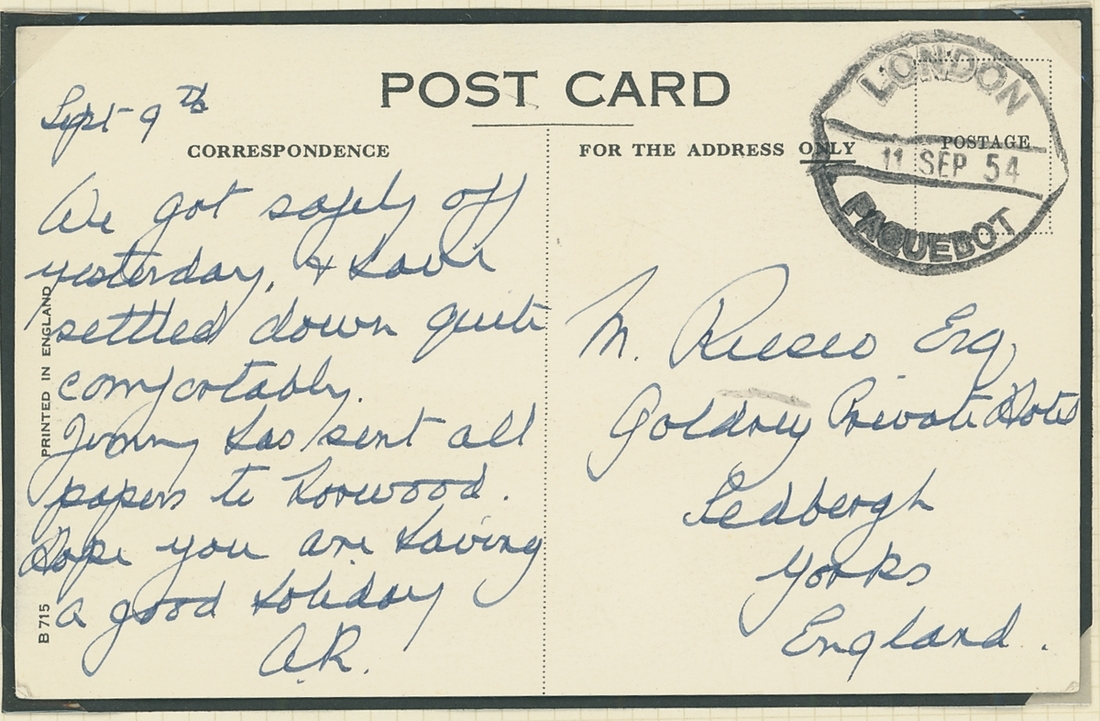 POST CARD
Sept 9th
CORRESPONDENCE
FOR THE ADDRESS ONLY
POSTAGE
LONDON
11 SEP 54
PAQUEBOT
We got safely off
yesterday, & have
settled down quite
comfortably.
Jimmy has sent all
papers to Norwood.
Hope you are having
a good holiday
A.R.
M. Esq,
Private Hotel
Sedbergh
Yorks
England.
PRINTED IN ENGLAND
B 715